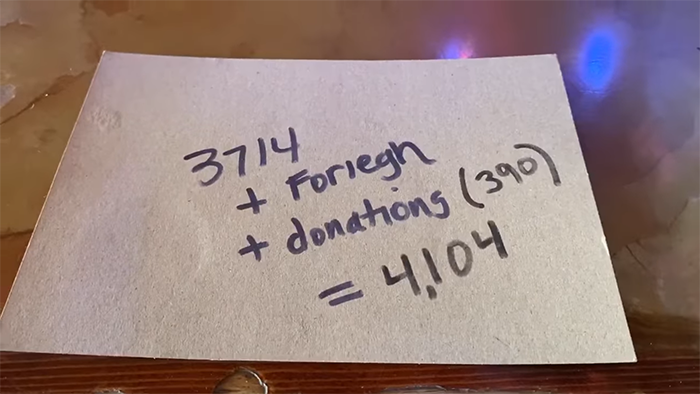 3714
+ Foriegh
+ donations (390)
= 4,104